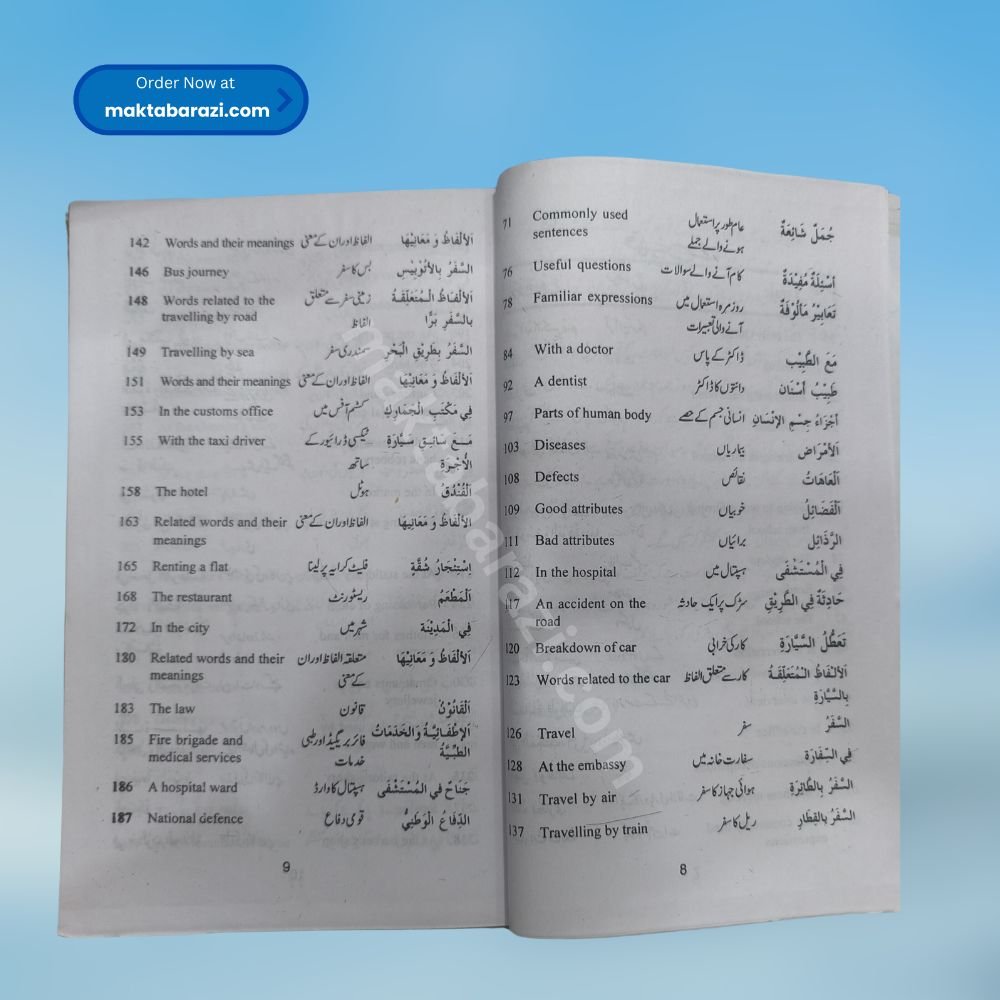 Order Now at
maktabarazi.com
71 Commonly used عام طور پر استعمال جُمَلٌ شَائِعَةٌ
sentences ہونے والے جملے
76 Useful questions کام آنے والے سوالات اَسْئِلَةٌ مُفِيْدَةٌ
78 Familiar expressions روزمرہ استعمال میں تَعَابِيْرُ مَالُوْفَةٌ
آنے والی تعبیرات
84 With a doctor ڈاکٹر کے پاس مَعَ الطَّبِيْبِ
92 A dentist دانتوں کا ڈاکٹر طَبِيْبُ اَسْنَان
97 Parts of human body انسانی جسم کے حصے اَجْزَاءُ جِسْمِ الْاِنْسَانِ
103 Diseases بیماریاں اَلْاَمْرَاض
108 Defects نقائص اَلْعَاهَاتُ
109 Good attributes خوبیاں اَلْفَضَائِلُ
111 Bad attributes برائیاں الرَّذَائِل
112 In the hospital ہسپتال میں فِي الْمُسْتَشْفٰى
117 An accident on the سڑک پر ایک حادثہ حَادِثَةٌ فِي الطَّرِيْقِ
road
120 Breakdown of car کار کی خرابی تَعَطُّلُ السَّيَّارَةِ
123 Words related to the car کار سے متعلق الفاظ اَلْاَلْفَاظُ الْمُتَعَلِّقَةُ
بِالسَّيَّارَةِ
126 Travel سفر السَّفَرُ
128 At the embassy سفارت خانہ میں فِي السِّفَارَةِ
131 Travel by air ہوائی جہاز کا سفر السَّفَرُ بِالطَّائِرَةِ
137 Travelling by train ریل کا سفر السَّفَرُ بِالْقِطَارِ
8
142 Words and their meanings الفاظ اور ان کے معنی اَلْاَلْفَاظُ وَ مَعَانِيْهَا
146 Bus journey بس کا سفر السَّفَرُ بِالْاُتُوْبِيْسِ
148 Words related to the زمینی سفر سے متعلق اَلْاَلْفَاظُ الْمُتَعَلِّقَةُ
travelling by road الفاظ بِالسَّفَرِ بَرًّا
149 Travelling by sea سمندری سفر السَّفَرُ بِطَرِيْقِ الْبَحْرِ
151 Words and their meanings الفاظ اور ان کے معنی اَلْاَلْفَاظُ وَ مَعَانِيْهَا
153 In the customs office کسٹم آفس میں فِي مَكْتَبِ الْجَمَارِكِ
155 With the taxi driver ٹیکسی ڈرائیور کے مَعَ سَائِقِ سَيَّارَةِ
ساتھ الْاُجْرَةِ
158 The hotel ہوٹل اَلْفُنْدُقُ
163 Related words and their الفاظ اور ان کے معنی اَلْاَلْفَاظُ وَ مَعَانِيْهَا
meanings
165 Renting a flat فلیٹ کرایہ پر لینا اِسْتِئْجَارُ شُقَّةٍ
168 The restaurant ریسٹورنٹ اَلْمَطْعَمُ
172 In the city شہر میں فِي الْمَدِيْنَةِ
180 Related words and their متعلقہ الفاظ اور ان اَلْاَلْفَاظُ وَ مَعَانِيْهَا
meanings کے معنی
183 The law قانون اَلْقَانُوْنُ
185 Fire brigade and فائر بریگیڈ اور طبی اَلْاِطْفَائِيَّةُ وَالْخَدَمَاتُ
medical services خدمات الطِّبِّيَّةُ
186 A hospital ward ہسپتال کا وارڈ جَنَاحٌ فِي الْمُسْتَشْفٰى
187 National defence قومی دفاع الدِّفَاعُ الْوَطَنِيُّ
9
maktabarazi.com